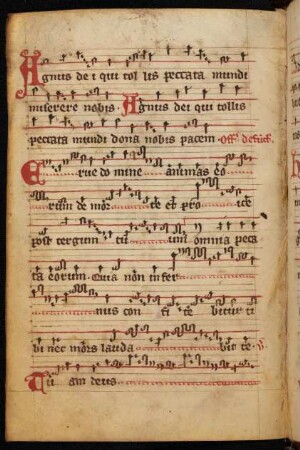 Agnus de i qui tol lis peccata mundi
miserere nobis. Agnus dei qui tollis
peccata mundi dona nobis pacem
E rue do mine animas eo
rum de mor te et pro ice
post tergum tu um omnia peca
ta eorum. Quia non infer
nus con fi te bitur ti
bi nec mors lauda bit te. V
Tu am deus